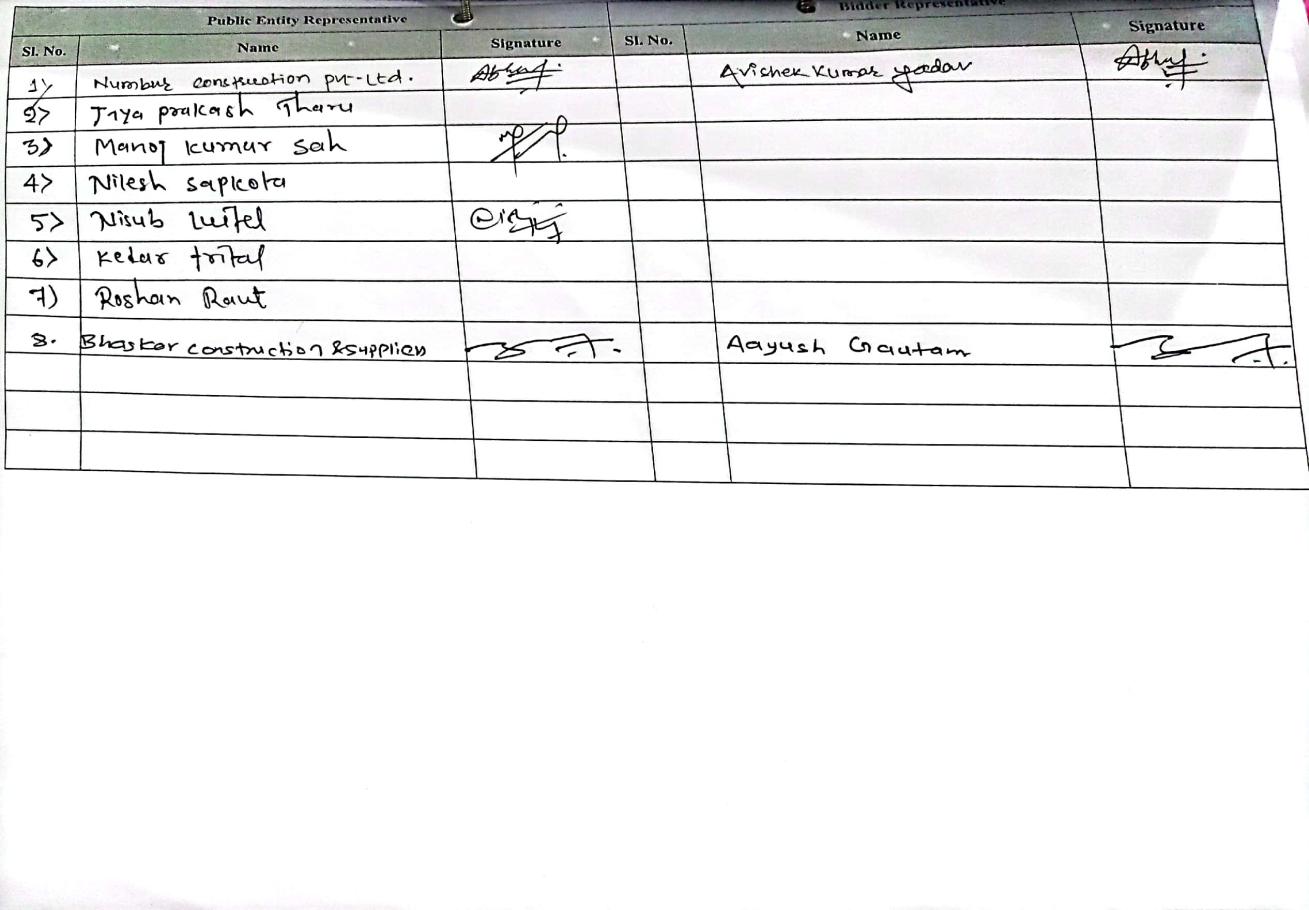 Public Entity Representative Bidder Representative
Sl. No. Name Signature Sl. No. Name Signature
1) Numbur construction pvt-Ltd. Avishek Kumar yadav
2) Jaya prakash Tharu
3) Manoj kumar sah
4) Nilesh sapkota
5) Nisub Luitel
6) Kedar
7) Roshan Raut
8. Bhaskar construction & suppliers Aayush Gautam